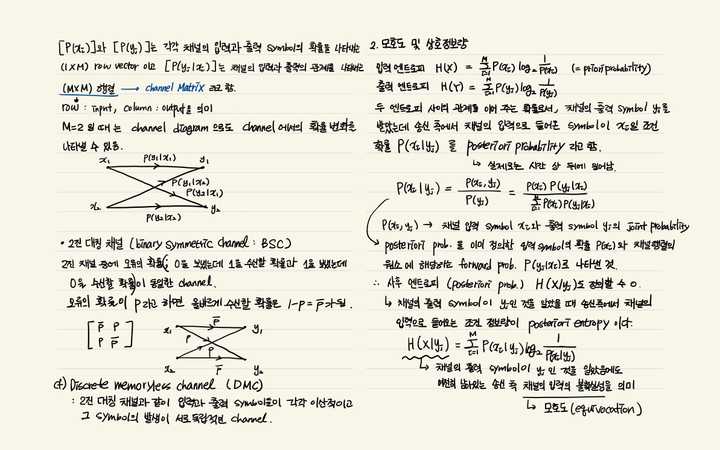 [P(xᵢ)]와 [P(yⱼ)]는 각각 채널의 입력과 출력 symbol의 확률을 나타내는
(1×M) row vector 이고 [P(yⱼ|xᵢ)]는 채널의 입력과 출력의 관계를 나타내는
(M×M) 행렬 → channel Matrix 라고 함.
row : input, column : output을 의미
M=2 일 때는 channel diagram 으로도 channel에서의 확률 변화를
나타낼 수 있다.
x₁ P(y₁|x₁) y₁
P(y₁|x₂)
P(y₂|x₁)
x₂ P(y₂|x₂) y₂
• 2진 대칭 채널 (binary symmetric channel : BSC)
2진 채널 중에 오류의 확률; 0을 보냈는데 1을 수신할 확률과 1을 보냈는데
0을 수신할 확률이 동일한 channel.
오류의 확률이 p라고 하면 올바르게 수신할 확률은 1-p = p̅가 됨.
[p̅ p
p p̅]
x₁ p̅ y₁
p
p
x₂ p̅ y₂
cf) Discrete memoryless channel (DMC)
: 2진 대칭 채널과 같이 입력과 출력 symbol들이 각각 이산적이고
그 symbol의 발생이 서로 독립적인 channel.
2. 모호도 및 상호정보량
입력 엔트로피 H(X) = Σᵢ₌₁ᴹ P(xᵢ) log₂ 1/P(xᵢ) (= priori probability)
출력 엔트로피 H(Y) = Σⱼ₌₁ᴹ P(yⱼ) log₂ 1/P(yⱼ)
두 엔트로피 사이의 관계를 이어 주는 확률로서, 채널의 출력 symbol yⱼ를
받았는데 송신 측에서 채널의 입력으로 들어온 symbol이 xᵢ일 조건
확률 P(xᵢ|yⱼ) 를 posteriori probability 라고 함.
↳ 실제로는 시간 상 뒤에 일어남.
P(xᵢ|yⱼ) = P(xᵢ,yⱼ)/P(yⱼ) = P(xᵢ) P(yⱼ|xᵢ)/Σᵢ₌₁ᴹ P(xᵢ) P(yⱼ|xᵢ)
P(xᵢ,yⱼ) → 채널 입력 symbol xᵢ와 출력 symbol yⱼ의 joint probability
posteriori prob. 를 이미 정의한 입력 symbol의 확률 P(xᵢ)와 채널행렬의
원소에 해당하는 forward prob. P(yⱼ|xᵢ)로 나타낸 것.
∴ 사후 엔트로피 (posteriori prob.) H(X|yⱼ)도 정의할 수 o.
↳ 채널의 출력 symbol이 yⱼ인 것을 알았을 때 송신측에서 채널의
입력으로 들어오는 조건 정보량이 posteriori entropy 이다.
H(X|yⱼ) = Σᵢ₌₁ᴹ P(xᵢ|yⱼ) log₂ 1/P(xᵢ|yⱼ)
↳ 채널의 출력 symbol이 yⱼ 인 것을 알았음에도
여전히 남아있는 송신 측 채널의 입력의 불확실성을 의미
↳ 모호도 (equivocation)